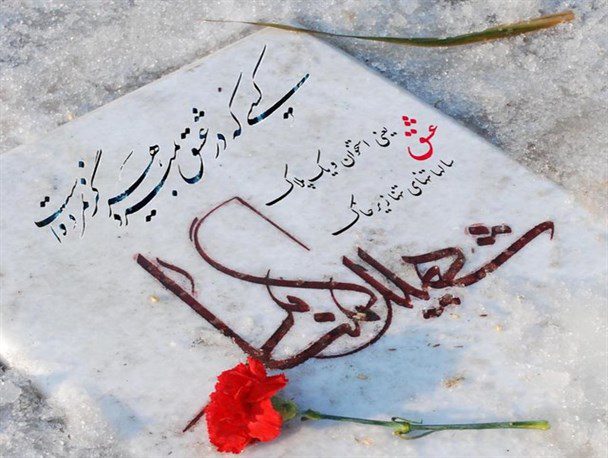 کسی که در عشق بمیرد هرگز نمرده است
عشق یعنی استخوان و یک پلاک
سالها تنهای تنها زیر خاک
شهید گمنام